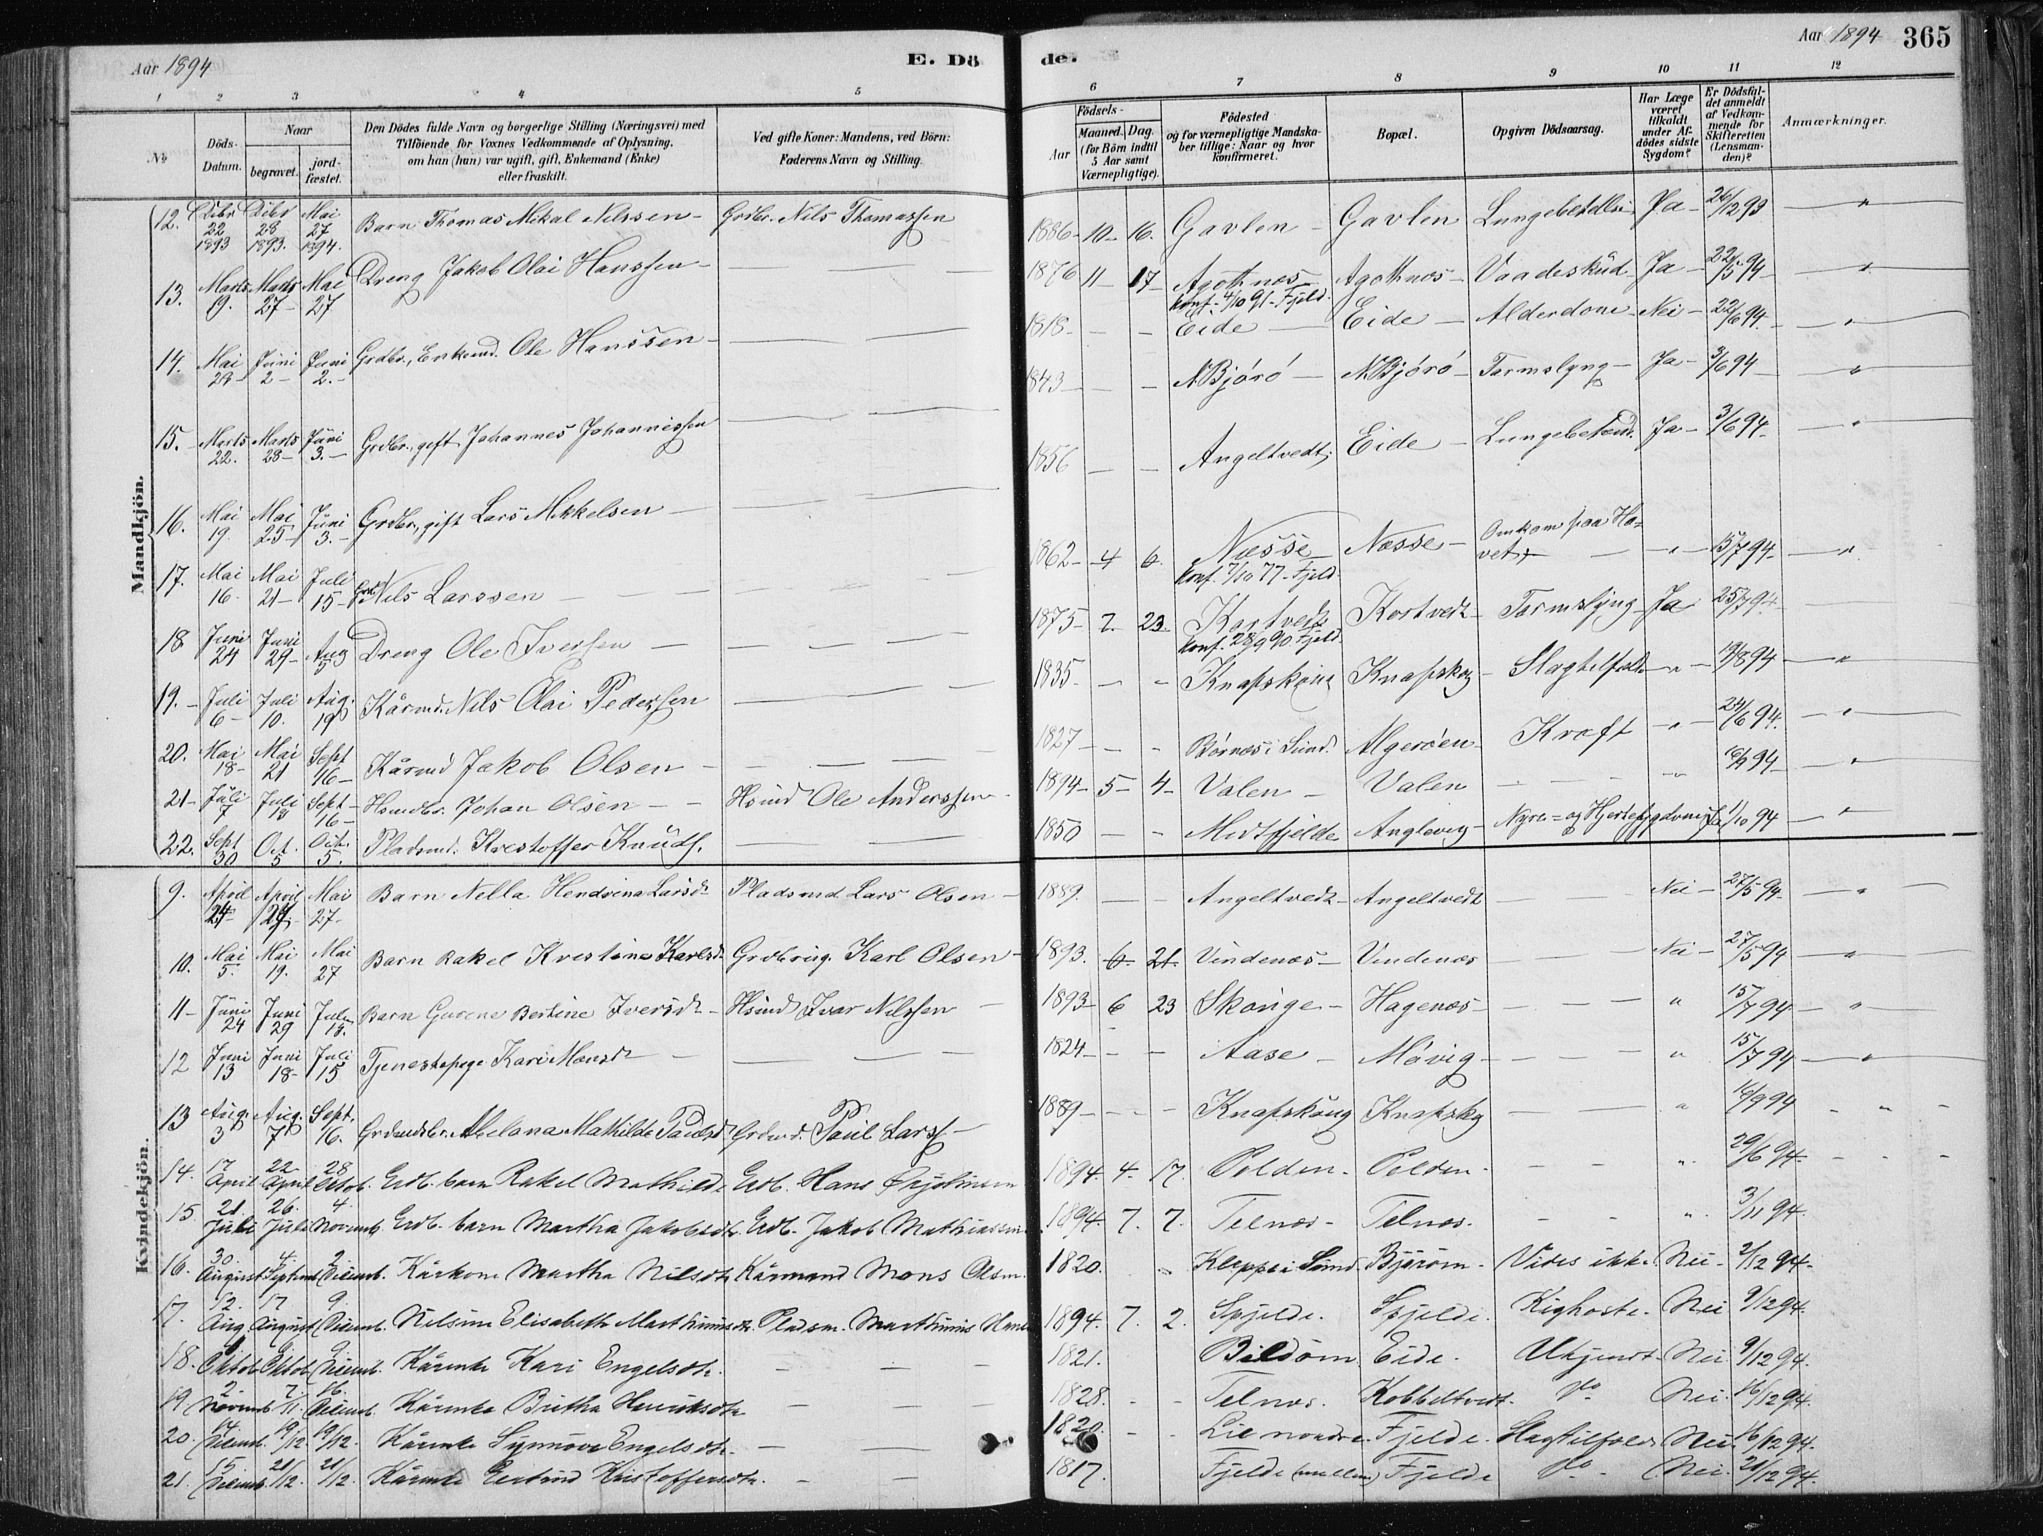 Aar 1894
E. Dö
de.
Aar 1894 365
1 2 3 4 5
6 7 8 9 10 11 12
No
Döds-Datum.
Naar
begravet. jord-fæstet.
Den Dödes fulde Navn og borgerlige Stilling (Næringsvei) med
Tilföiende for Voxnes Vedkommende af Oplysning,
om han (hun) var ugift, gift, Enkemand (Enke)
eller fraskilt.
Ved gifte Koner: Mandens, ved Börn:
Faderens Navn og Stilling.
Födsels-
Aar
Maaned. Dag.
(for Börn indtil
5 Aar samt
Værnepligtige).
Födested
og for værnepligtige Mandska-
ber tillige: Naar og hvor
konfirmeret.
Bopæl.
Opgiven Dödsaarsag.
Har Læge
været
tilkaldt
under Af-
dödes sidste
Sygdom?
Er Dödsfal-
det anmeldt
af Vedkom-
mende for
Skifteretten
(Lensman-
den)?
Anmærkninger.
Mandkjön.
12. Decbr 22 1893 Decbr 28 1893. Mai 27 1894. Barn Thomas Mikal Nilssen - Grdbr. Nils Thomassen 1886 - 10 - 16. Gavlen - Gavlen Ja - 26/12 93 "
13. Marts 19. Marts 27 Mai 27 Dreng Jakob Olai Hanssen - 1876 11 - 17 - Agothnes Konf. 4/10 91 - Fjeld. Agothnes - Vaadeskud Ja - 22/5 94 - "
14. Mai 2 - Juni 2 - Juni 2. - Grdbr., Enkemd. Ole Hanssen - 1818 - - - Eide - Eide - Alderdom - Nei - 22/6 94 - "
15. Marts 22. Marts 28 - Juni 3. - Grdbr., gift Johannes Johannessen 1843 - - - N Bjóró - N Bjóró - Tarmslyng - Ja - 3/6 94 "
16. Mai 19 Mai 25 - Juni 3. - Grdbr., gift Lars Mikkelsen - 1856 - - Angeltvedt; Eide - Ja - 3/6 94 - "
17. Mai 16. Mai 21 - Juli 15 - Nils Larssen - 1862 - 4 6. Næsse Konf. 7/10 77 - Fjeld. Næsse - Omkom paa Ha-vet, - " - 15/7 94 - "
18 Juni 24 Juni 29 - Aug 5 Dreng Ole Iversen - 1875 - 7. 23. Kortvedt Konf. 28/9 90 Fjeld. Kortvedt - Tarmslyng - Ja 25/7 94 -
19. - Juli 6 - Juli 10. Aug. 19 Kårmd. Nils Olai Pedersen 1835 - - - Knapskóug Knapskog - " - 19/8 94 - "
20. Mai 18 - Mai 21 Sept 16 - Kårmd Jakob Olsen - 1827 - - - Børnes i Sund. Algeróen - Kræft " - 24/6 94. "
21 - Juli 7 Juli Sept - 16 - Johan Olsen - - Hsmd Ole Anderssen - 1894 - 5 - 4 - Valen - Valen - " 16/9 94 - "
22. Sept 30 Oct. 5 Octr. 5. Pladsmd. Kristoffer Knuds. 1850 - - Midtfjelde Anglevig - Nyre- og Ja 1/10 94 - "
Kvindekjön.
9. April 24 April 29. Mai 27 - Barn Nella Hendrina Larsdr Pladsmd Lars Olsen - 1889. - - Angeltvedt - Angeltvedt - Nei - 27/5 94 - "
10. Mai 5. Mai 19. Mai 27 Barn Rakel Kristine Karlsd. Karl Olsen - 1893. 6. 21. Vindenes - Vindenes - Nei - 27/5 94 - "
11 - Juni 24 Juni 29 Juli 15. Barn Gurene Bertine Iversdr - Hsmd Ivar Nilssen - 1893 - 6 23 Skoüge - Hagenæs - " 15/7 94 - "
12 Juni 13 Juni 18 - Juli 15 Tjenestepige Kari Monsdr - 1824 - - - Aase - Móvig - " 15/7 94 - "
13 Aug. 3 Aug. 7 Sept. 16. Melana Mathilde Paulsd. Grdmd. Paul Larss - 1889 - - - Knapskóug Knapskog - " 16/9 94 - " -
14. 17 April 22 April 28 Oktob. Grdb. barn Rakel Mathilde Grdb. Hans 1894. 4. 17. Polden. Polden. - - ". 29/6 94. - - -
15 21 Juli 26. Juli 4. Novemb Grdb. barn Martha Jakobsdtr Grdb. Jakob Mathiassen 1894. 7. 7. Telnæs - Telnæs. - - ". 3/11 94.
16. 30. August 4. Septemb 2. Decemb. Kårkone Martha Nilsdtr Kårmand Mons Olsen. 1820. " Kleppe i Sund Björöen. Vides ikke. Nei - 2/12 94 -
17. 12. Aug. 17 August 9. Decemb. Nilsine Elisabeth Marthinusdtr. Pladsm. Marthinus 1894. 7. 2. Spjelde. Spjelde. Kighoste. Nei 9/12 94.
18. Oktob Oktob 9. Decemb. Kårenke Kari Engelsdtr. - - - 1821. Bildöen. Eide. Ukjendt. Nei 9/12 94.
19 2. Novemb 7. /11. 16. Decemb. Kårenke Britha Henriksdtr - - - 1828. - - Telnæs. Kobbeltvedt. Do Nei. 16/12 94.
20. 14. Decemb. 19/12 19/12. Kårenke Synnöve Engelsdtr. - - 1820. - - Lie nordre. Fjelde. Slagtilfælde Nei. 16/12 94.
21. 15 Decemb. 21/12. 21/12. Kårenke Gertrud Kristoffersdtr. - - 1817. Fjelde (mellem) Fjelde Do - Nei. 21/12 94.